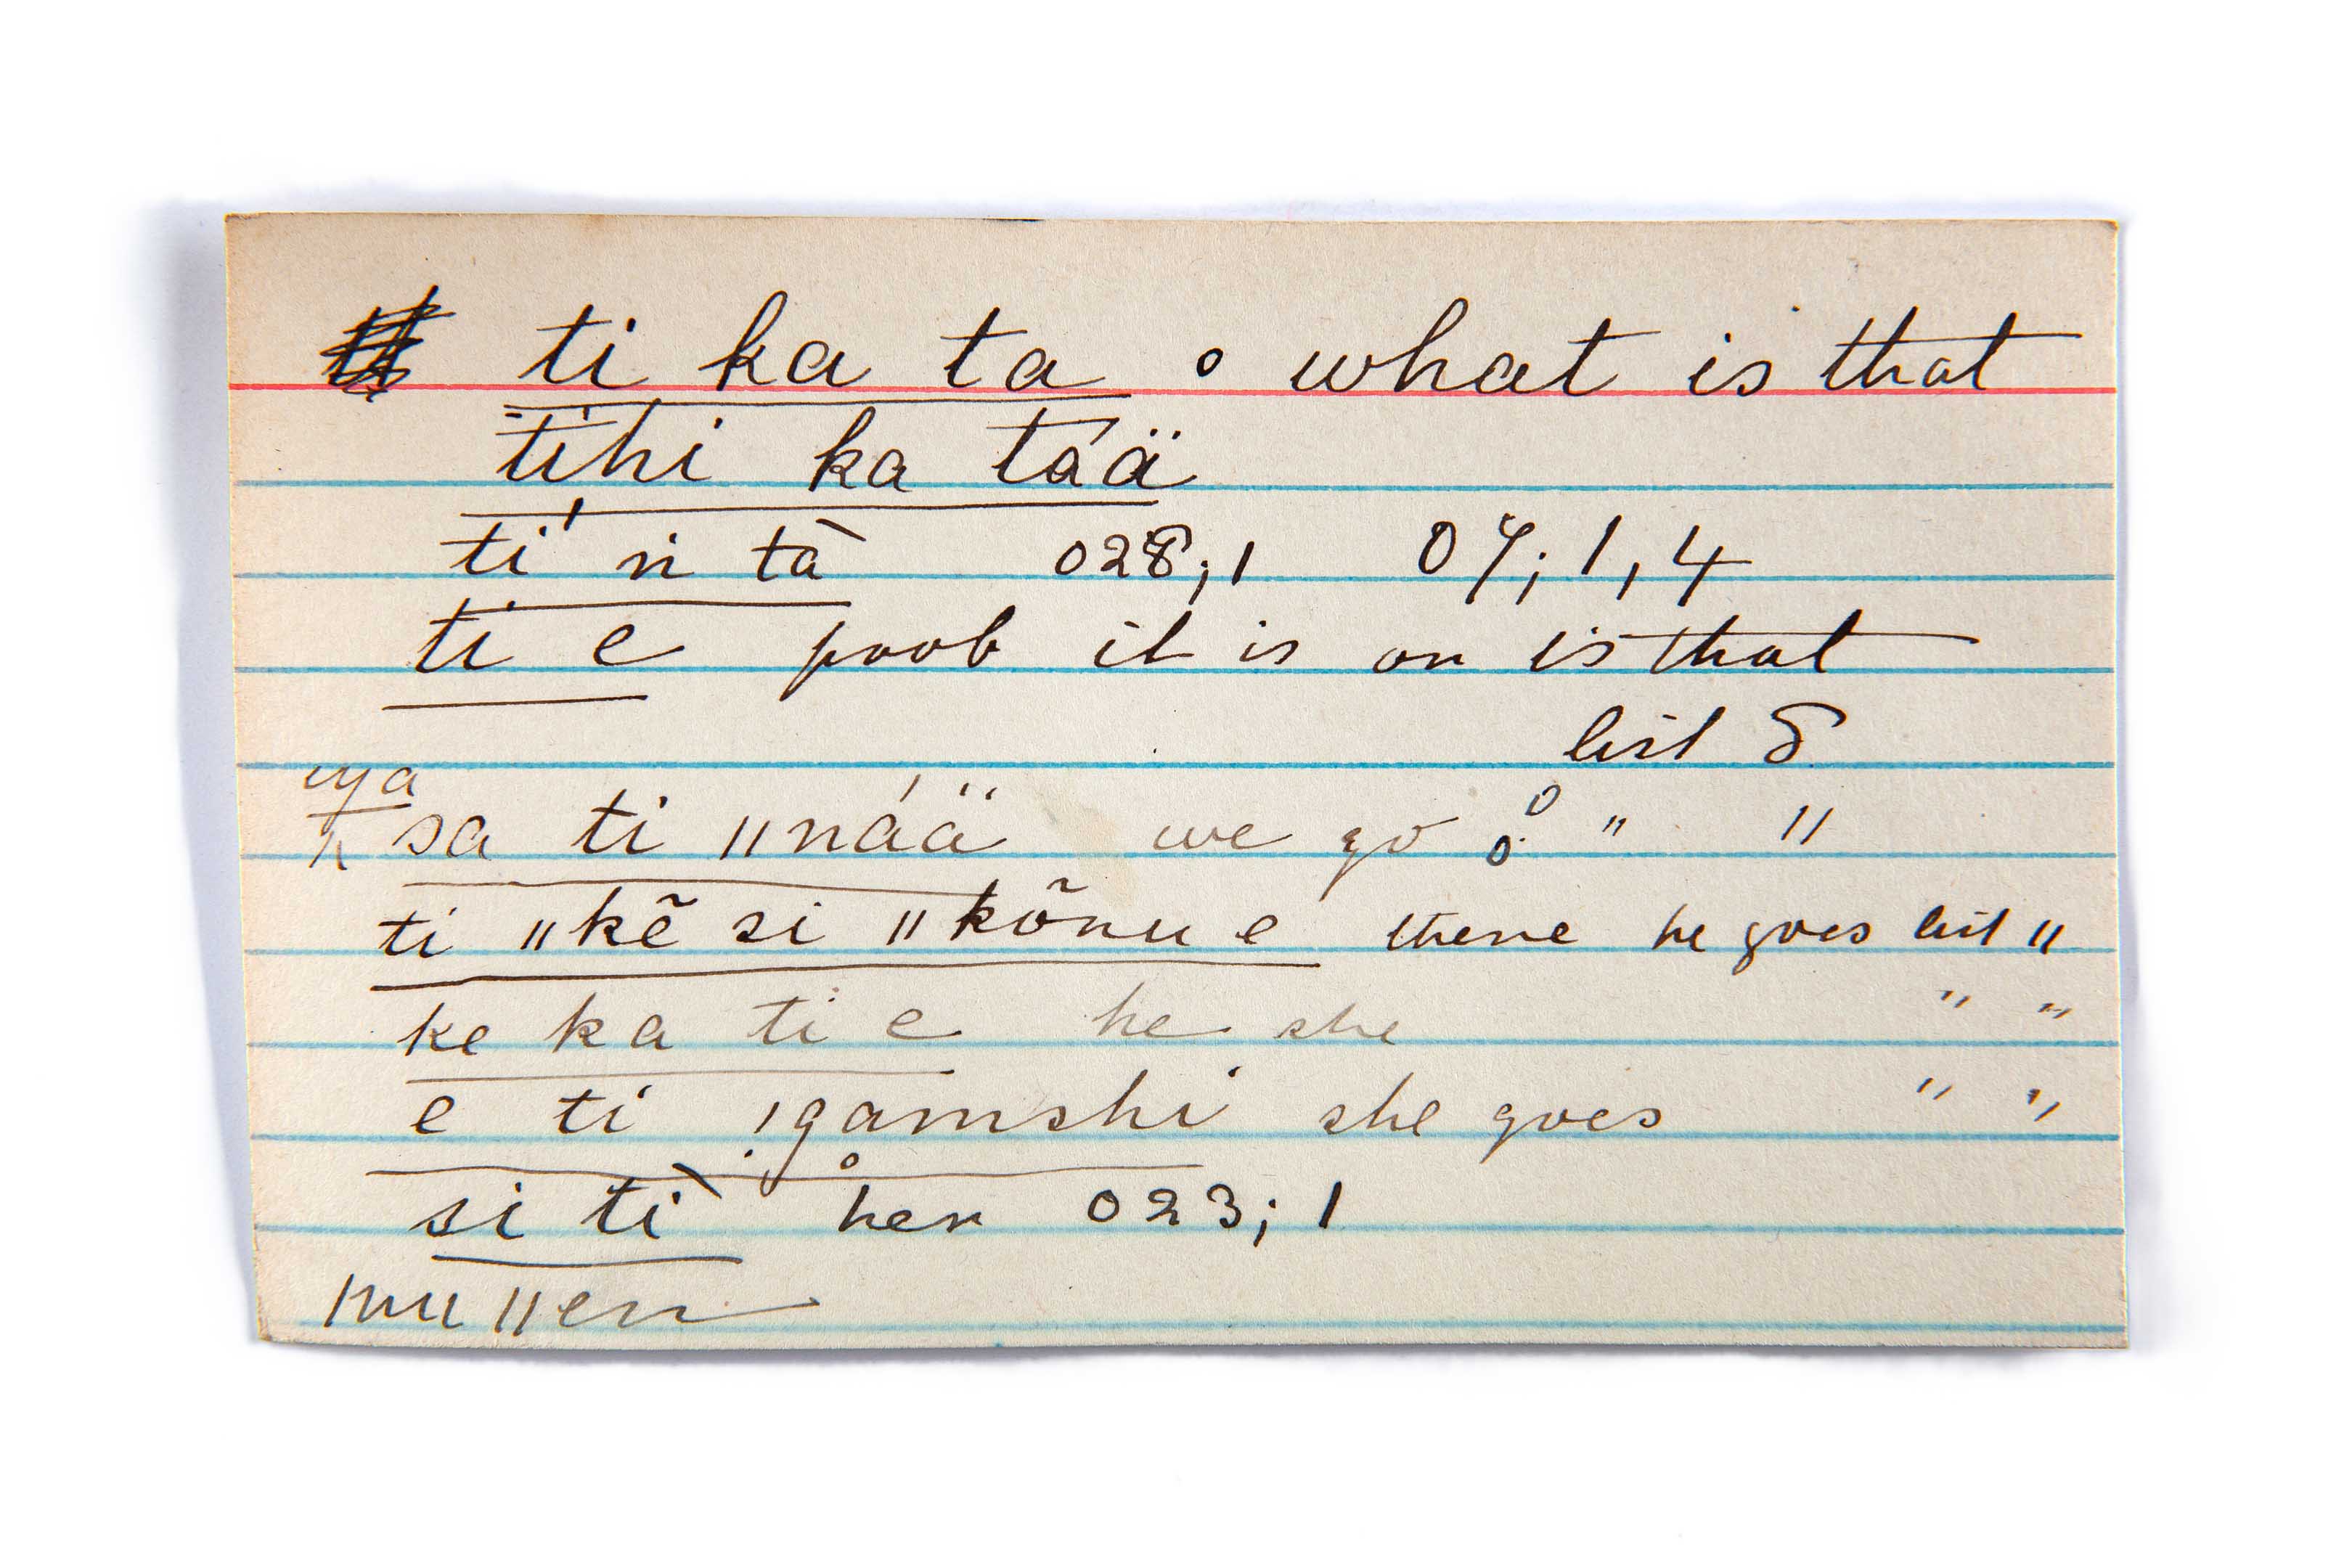 ti ka ta ° what is that
tihi ka táä
ti' n tà 028;1 07;1,4
ti e prob it is or is that
list δ
sa ti ǁnáä we go " "
ti ǁkẽ si ǁkõnu e there he goes list "
ke ka ti e he she " "
e ti !gamshi she goes " "
si tì her 023;1
ǀnu ǁen